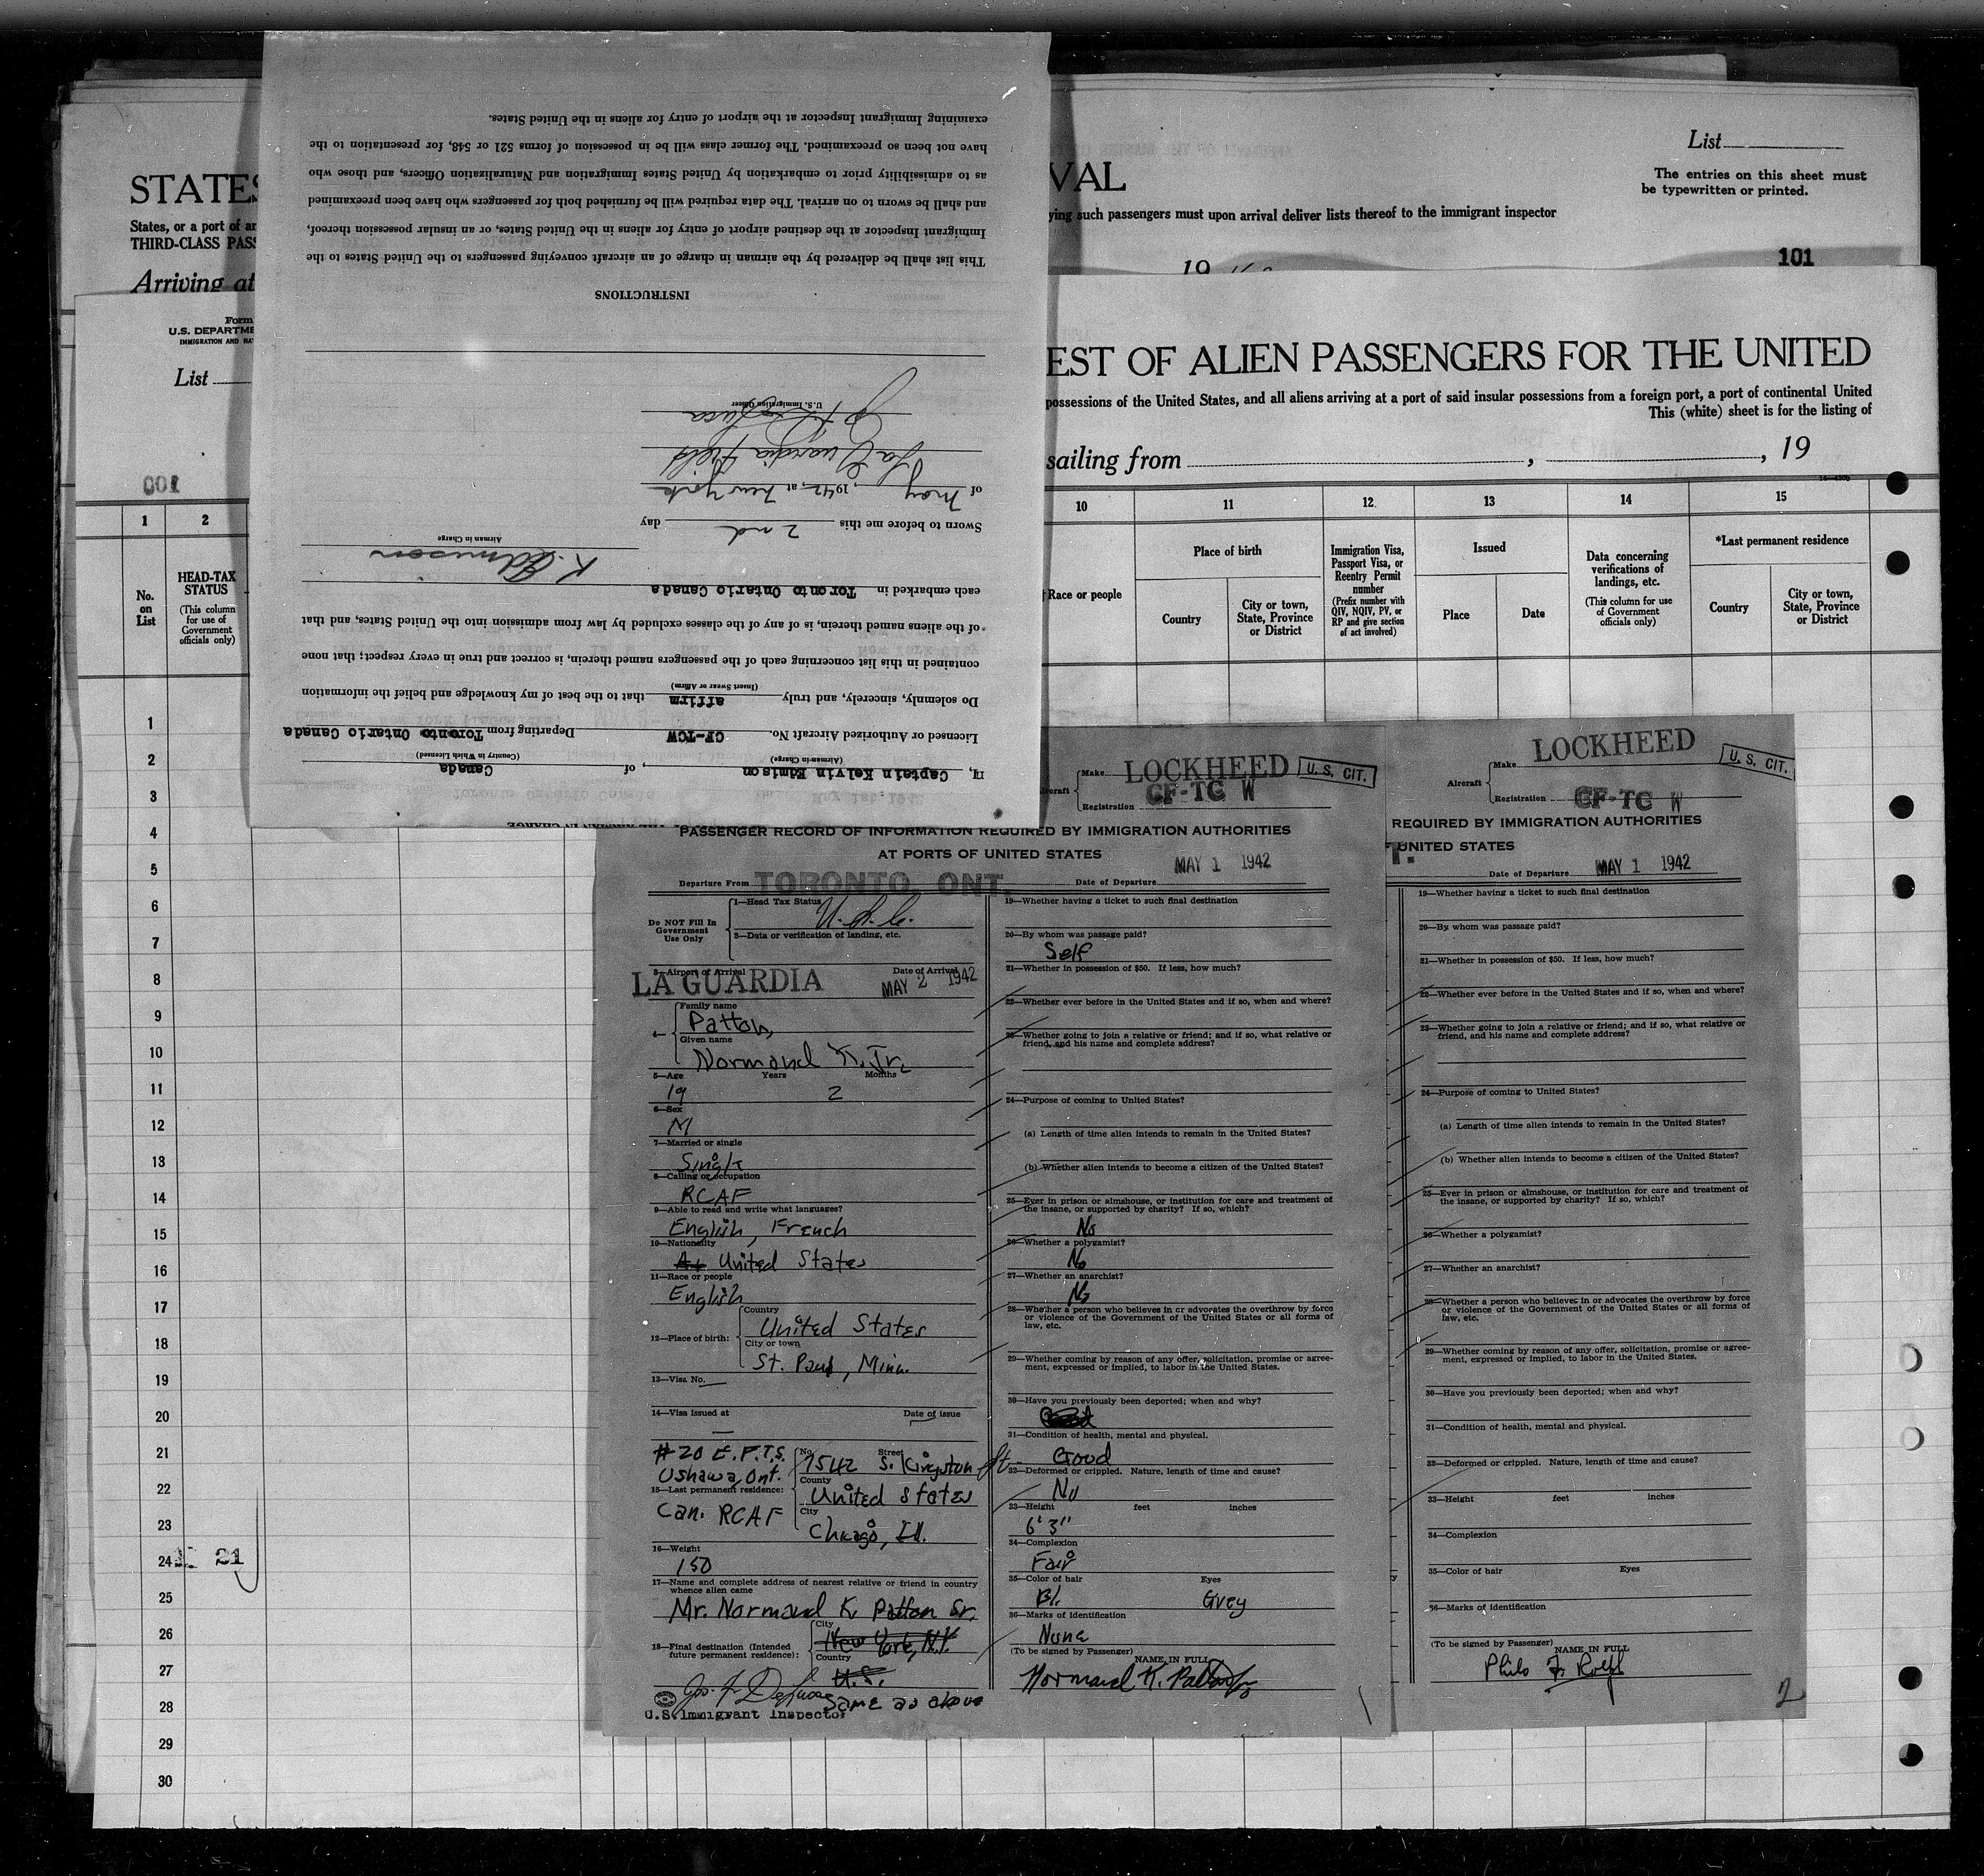 List
The entries on this sheet must
be typewritten or printed.
STATES
VAL
States, or a port of
THIRD-CLASS PASS
ying such passengers must upon arrival deliver lists thereof to the immigrant inspector
Arriving at
19
101
Form
U.S. DEPARTME
IMMIGRATION AND NA
List
EST OF ALIEN PASSENGERS FOR THE UNITED
possessions of the United States, and all aliens arriving at a port of said insular possessions from a foreign port, a port of continental United
This (white) sheet is for the listing of
sailing from , , 19
001
1 2
No.
on
List
HEAD-TAX
STATUS
(This column
for use of
Government
officials only)
10 11 12 13 14 15
Race or people
Place of birth
Country
City or town,
State, Province
or District
Immigration Visa,
Passport Visa, or
Reentry Permit
number
(Prefix number with
QIV, NQIV, PV, or
RP and give section
of act involved)
Issued
Place
Date
Data concerning
verifications of
landings, etc.
(This column for use
of Government
officials only)
*Last permanent residence
Country
City or town,
State, Province
or District
1
2
3
4
5
6
7
8
9
10
11
12
13
14
15
16
17
18
19
20
21
22
23
24 21
25
26
27
28
29
30
I, Captain Kelvin Edmison, of Canada
(Airman in Charge) (Country in Which Licensed)
Licensed or Authorized Aircraft No. CF-TCW Departing from Toronto Ontario Canada
Do solemnly, sincerely, and truly affirm that to the best of my knowledge and belief the information
(Insert Swear or Affirm)
contained in this list concerning each of the passengers named therein, is correct and true in every respect; that none
of the aliens named therein, is of any of the classes excluded by law from admission into the United States, and that
each embarked in Toronto Ontario Canada
K. Edmison
Airman in Charge
Sworn to before me this 2nd day
of May, 1942, at New York
La Guardia Field
U. S. Immigration Officer
INSTRUCTIONS
This list shall be delivered by the airman in charge of an aircraft conveying passengers to the United States to the
Immigrant Inspector at the destined airport of entry for aliens in the United States, or an insular possession thereof,
and shall be sworn to on arrival. The data required will be furnished both for passengers who have been preexamined
as to admissibility prior to embarkation by United States Immigration and Naturalization Officers, and those who
have not been so preexamined. The former class will be in possession of forms 521 or 548, for presentation to the
examining Immigrant Inspector at the airport of entry for aliens in the United States.
Aircraft
Make LOCKHEED U. S. CIT.
Registration CF-TC W
PASSENGER RECORD OF INFORMATION REQUIRED BY IMMIGRATION AUTHORITIES
AT PORTS OF UNITED STATES
Departure From TORONTO, ONT. Date of Departure MAY 1 1942
Do NOT Fill In
Government
Use Only
1—Head Tax Status U.S.C.
2—Data or verification of landing, etc.
3—Airport of Arrival Date of Arrival
LA GUARDIA MAY 2 1942
4—
Family name
Patton,
Given name
Normand K. Jr.
5—Age Years Months
19 2
6—Sex
M
7—Married or single
Single
8—Calling or occupation
RCAF
9—Able to read and write what languages?
English, French
10—Nationality
United States
11—Race or people
English
12—Place of birth:
Country
United States
City or town
St. Paul, Minn.
13—Visa No. —
14—Visa issued at Date of issue
—
#20 E.F.T.S.
Oshawa, Ont.
15—Last permanent residence:
Can. RCAF
No. Street
7542 S. Kingston St.
County
United States
City
Chicago, Ill.
16—Weight
150
17—Name and complete address of nearest relative or friend in country
whence alien came
Mr. Normand K. Patton Sr.
18—Final destination (Intended
future permanent residence):
City
New York, N.Y.
Country
U.S.
Same as above
U.S. Immigrant Inspector
19—Whether having a ticket to such final destination
20—By whom was passage paid?
Self
21—Whether in possession of $50. If less, how much?
22—Whether ever before in the United States and if so, when and where?
23—Whether going to join a relative or friend; and if so, what relative or
friend, and his name and complete address?
24—Purpose of coming to United States?
(a) Length of time alien intends to remain in the United States?
(b) Whether alien intends to become a citizen of the United States?
25—Ever in prison or almshouse, or institution for care and treatment of
the insane, or supported by charity? If so, which?
No
26—Whether a polygamist?
No
27—Whether an anarchist?
No
28—Whether a person who believes in or advocates the overthrow by force
or violence of the Government of the United States or all forms of
law, etc.
29—Whether coming by reason of any offer, solicitation, promise or agree-
ment, expressed or implied, to labor in the United States.
30—Have you previously been deported; when and why?
31—Condition of health, mental and physical.
Good
32—Deformed or crippled. Nature, length of time and cause?
No
33—Height feet inches
6' 3"
34—Complexion
Fair
35—Color of hair Eyes
Bl. Grey
36—Marks of identification
None
(To be signed by Passenger) NAME IN FULL
Normand K. Patton Jr.
Aircraft
Make LOCKHEED U. S. CIT.
Registration CF-TC W
REQUIRED BY IMMIGRATION AUTHORITIES
UNITED STATES
T.
Date of Departure MAY 1 1942
19—Whether having a ticket to such final destination
20—By whom was passage paid?
21—Whether in possession of $50. If less, how much?
22—Whether ever before in the United States and if so, when and where?
23—Whether going to join a relative or friend; and if so, what relative or
friend, and his name and complete address?
24—Purpose of coming to United States?
(a) Length of time alien intends to remain in the United States?
(b) Whether alien intends to become a citizen of the United States?
25—Ever in prison or almshouse, or institution for care and treatment of
the insane, or supported by charity? If so, which?
26—Whether a polygamist?
27—Whether an anarchist?
28—Whether a person who believes in or advocates the overthrow by force
or violence of the Government of the United States or all forms of
law, etc.
29—Whether coming by reason of any offer, solicitation, promise or agree-
ment, expressed or implied, to labor in the United States.
30—Have you previously been deported; when and why?
31—Condition of health, mental and physical.
32—Deformed or crippled. Nature, length of time and cause?
33—Height feet inches
34—Complexion
35—Color of hair Eyes
36—Marks of identification
(To be signed by Passenger) NAME IN FULL
Philo F. Rolph
2